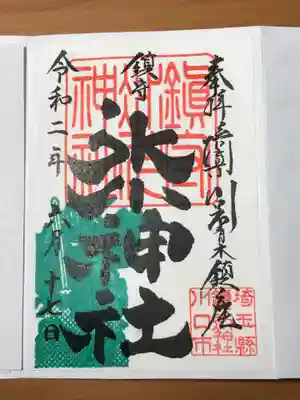 奉拝
川口青木鎮座
鎮守
氷川神社
令和二年
月十七日
鎮守
氷川
神社
埼玉縣
川口市